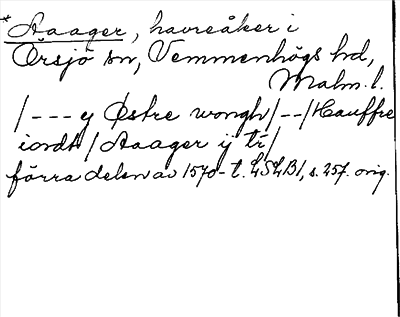 *Aaager, havreåker i
Örsjö sn, Vemmenhögs hd,
Malm. l.
/--- y Østre wongh/--/Hauffre
iordt/Aaager ij tr/
förra delen av 1570-t. LSLB1, s. 257. orig.